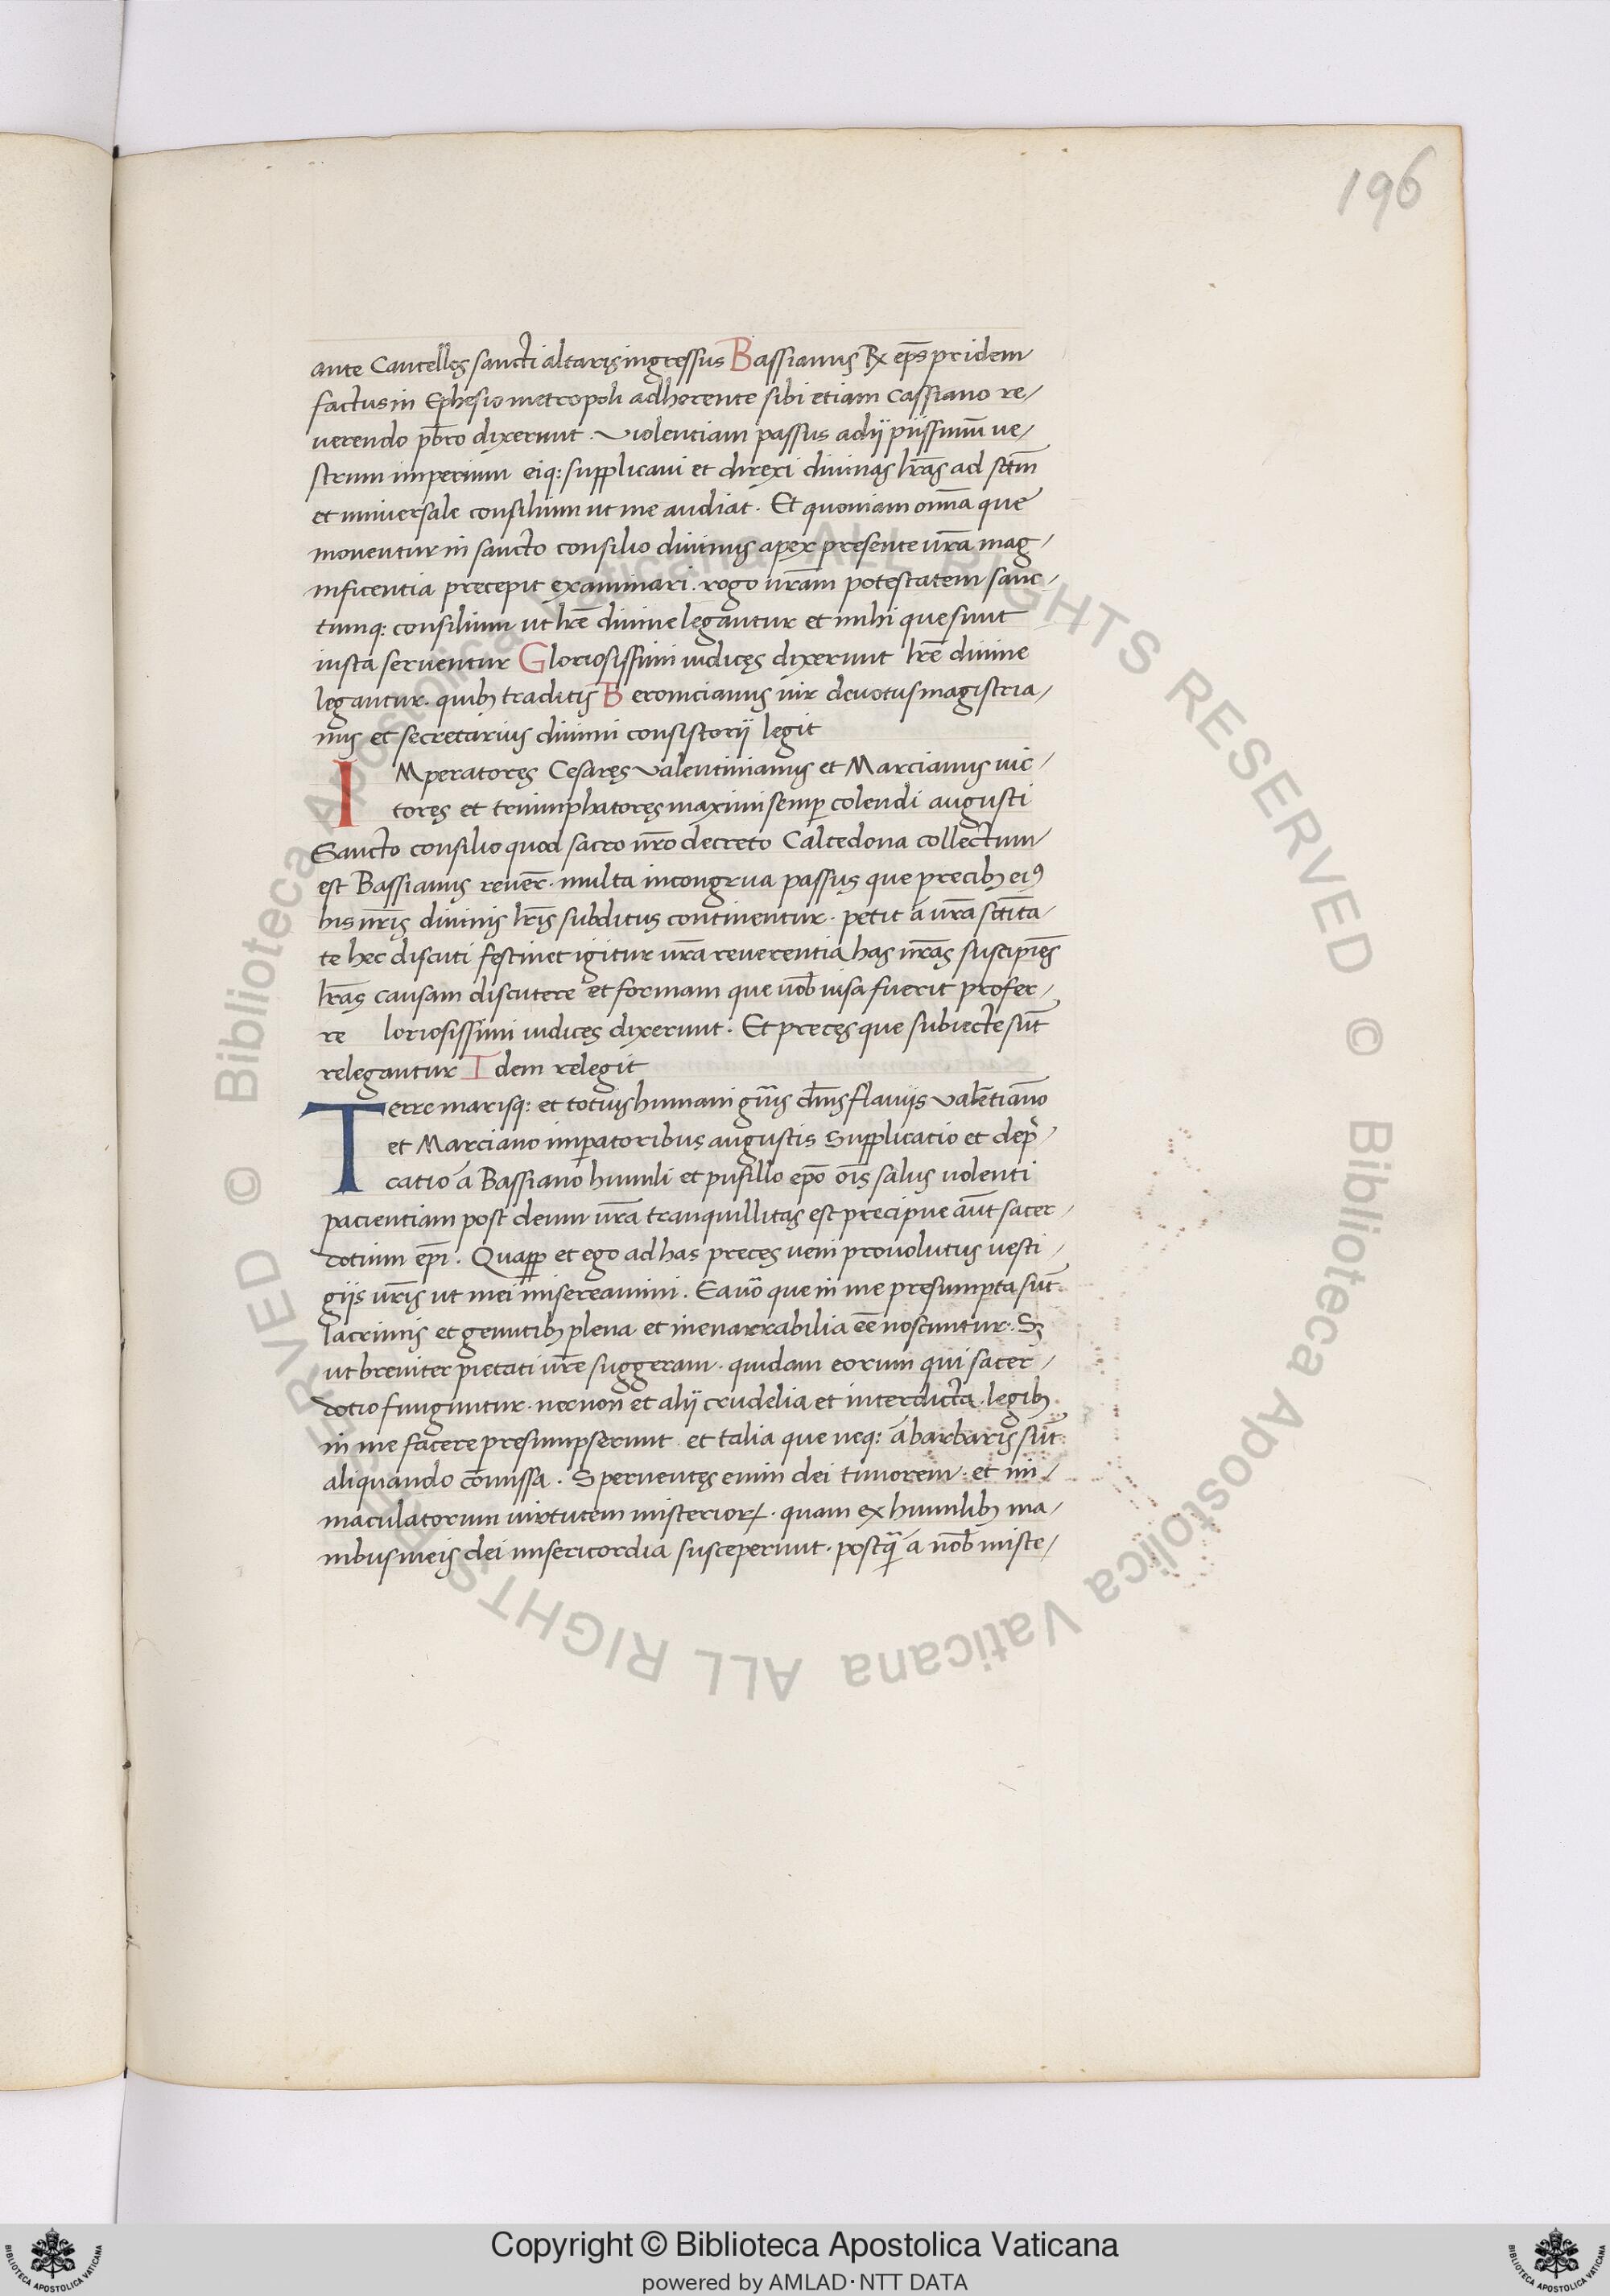 196
ante Cancellęs sancti altarįs ingressus Bassianus Rx ep̄s pridem
factus in Ephesio metropoli adherente sibi etiam Cassiano re/
verendo pb̄ro dixerunt . violentiam passus adij piissimū ve/
strum imperium eiq: supplicavi et direxi divinas l̄ras ad sctm̄
et universale consilium ut me audiat . Et quoniam om̄a que
moventur in sancto consilio divinus apex presente vr̄a mag/
nificentia precepit examinari . rogo vr̄am potestatem sanc/
tumq: consilium ut lr̄e divine legantur et mihi que sunt
iusta serventur Gloriosissimi iudices dixerunt lr̄e divine
legantur . quibȝ traditis Beronicianus vir devotus magistria/
nus et secretarius divini consistorij legit
IMperatores Cesares valentinianus et Marcianus vic/
tores et triumphatores maximi semꝑ colendi augusti
Sancto consilio quod sacro nr̄o decreto Calcedona collectum
est Bassianus rever̄ . multa incongrua passus que precibȝ eiꝰ
his nr̄is divinis lr̄is subditus continentur . petit a vr̄a sctīta/
te hec discuti festinet igitur vr̄a reverentia has nr̄as suscipiēs
lr̄as causam discutere et formam que nob̄ visa fuerit profer/
re loriosissimi iudices dixerunt . Et preces que subiecte sūt
relegantur Idem relegit
Terre marisq: et totius humani gn̄is dn̄is flavijs valētiano
et Marciano imꝑatoribus augustis Supplicatio et dep̄/
catio a Bassiano humili et pusillo ep̄o oīs salus volenti
pacientiam post deum vr̄a tranquillitas est precipue aūt sacer/
dotium ep̄i . Quaꝓꝑ et ego ad has preces veni provolutus vesti/
gijs vr̄is ut mei misereamini . Ea vō que in me presumpta sūt
lacrimis et gemitibȝ plena et inenarrabilia eē noscuntur . Sȝ
ut breviter pietati vr̄e suggeram . quidam eorum qui sacer/
dotio funguntur . necnon et alij crudelia et interdicta legibȝ
in me facere presumpserunt . et talia que neq: a barbaris sūt
aliquando cōmissa . Spernentes enim dei timorem . et im/
maculatorum virtutem misterioꝝ . quam ex humilibȝ ma/
nibus meis dei misericordia susceperunt . postq̄ a nob̄ miste/
© Biblioteca Apostolica Vaticana ALL RIGHTS RESERVED © Biblioteca Apostolica Vaticana ALL RIGHTS RESERVED
BIBLIOTECA APOSTOLICA VATICANA
Copyright © Biblioteca Apostolica Vaticana
powered by AMLAD·NTT DATA
BIBLIOTECA APOSTOLICA VATICANA